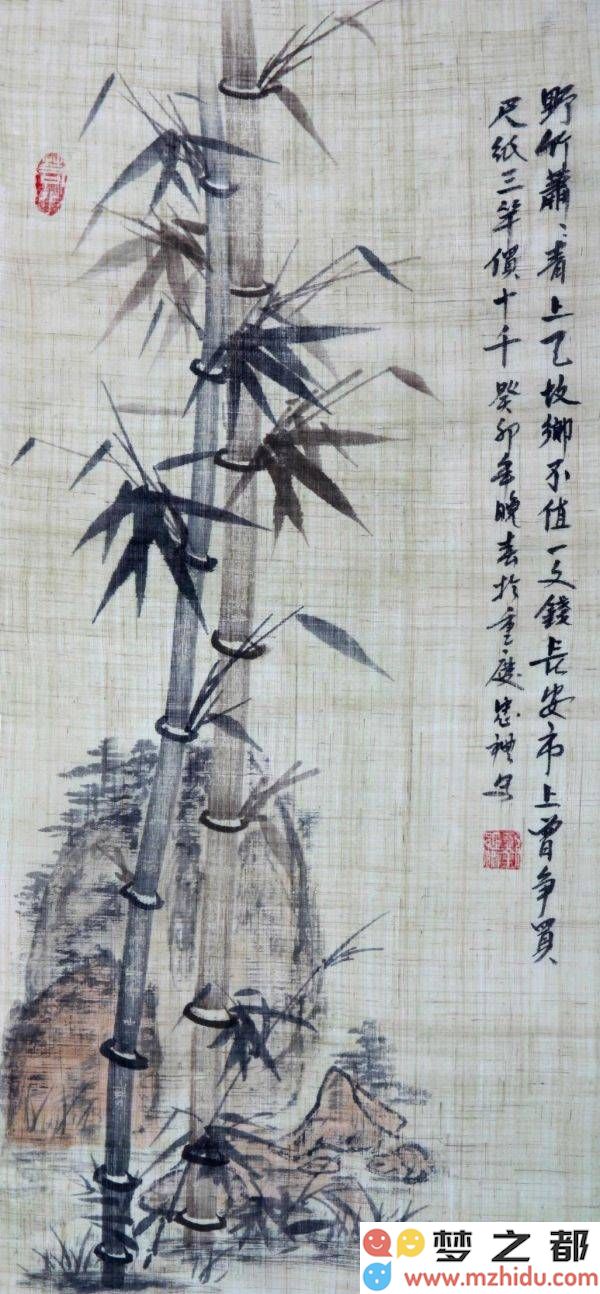 野竹蕭〻青上天故鄉不值一文錢長安市上曾爭買
尺紙三竿價十千癸卯年晚春於重慶忠禮寫
梦之都
www.mzhidu.com